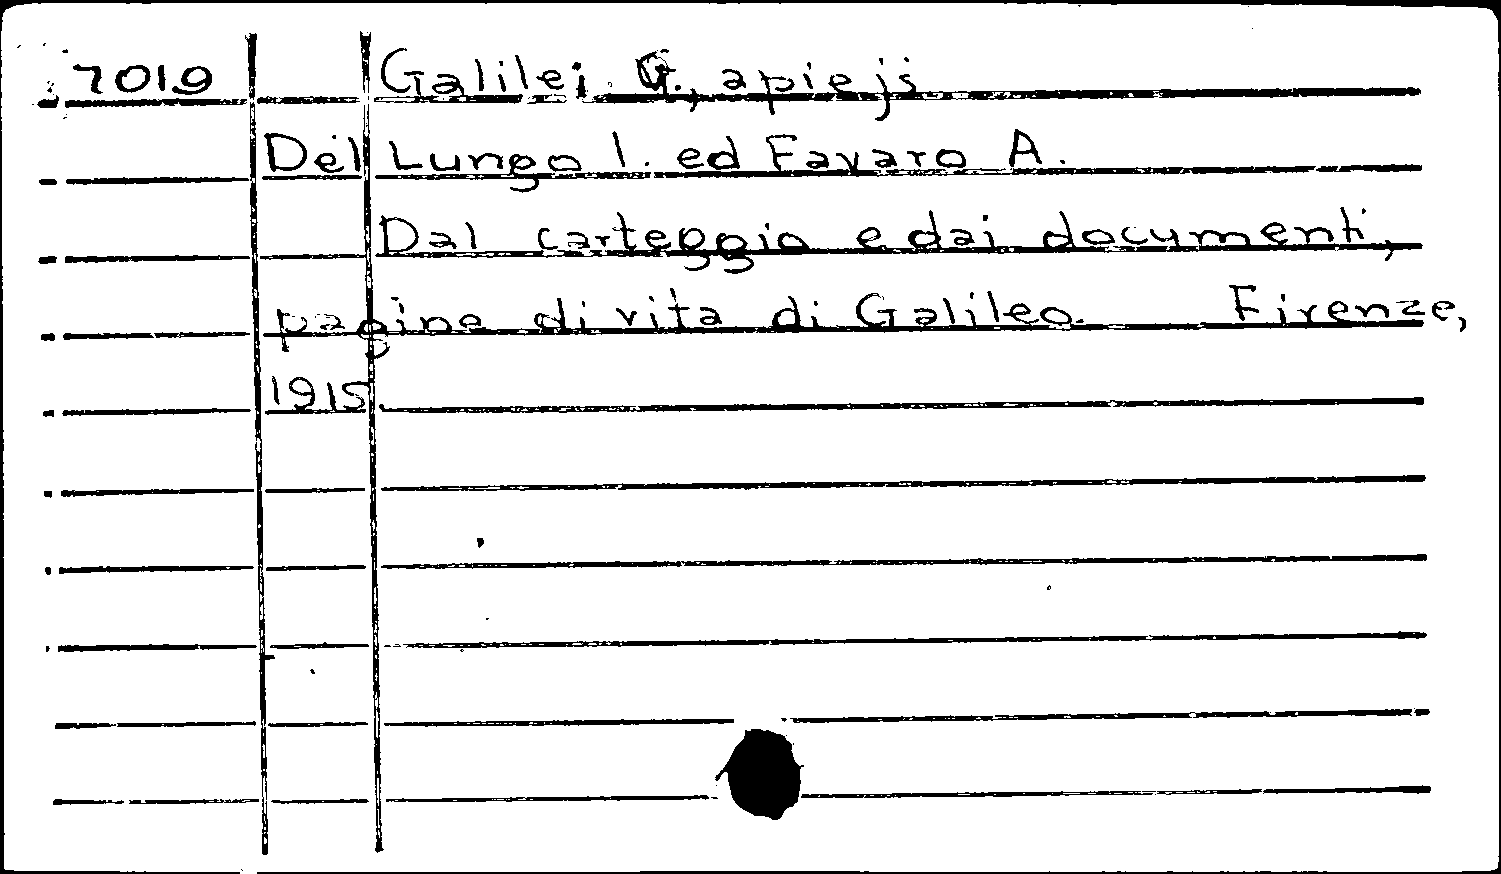 7019 Galilei G., apie jį
Del Lungo I. ed Favaro A.
Dal carteggio e dai documenti,
pagine di vita di Galileo. Firenze,
1915.